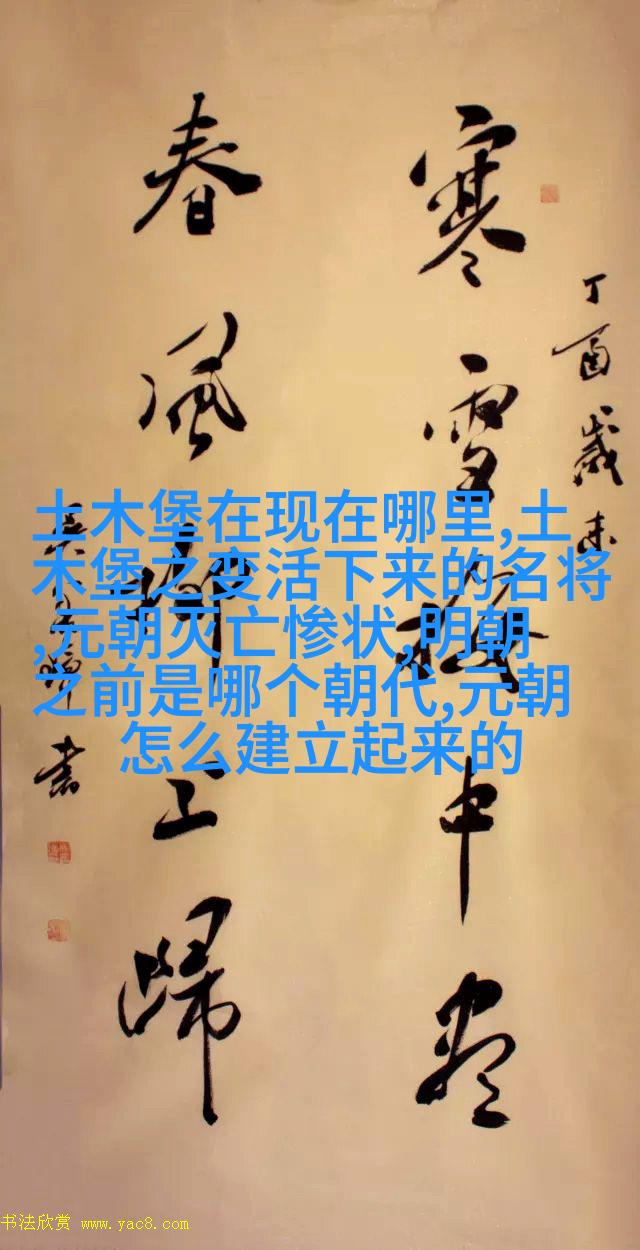 丁酉歲末
寒雪梅中尽
春風柳上歸
書
土木堡在现在哪里,土
木堡之变活下来的名将
,元朝灭亡惨状,明朝
之前是哪个朝代,元朝
怎么建立起来的
书法欣赏 www.yac8.com